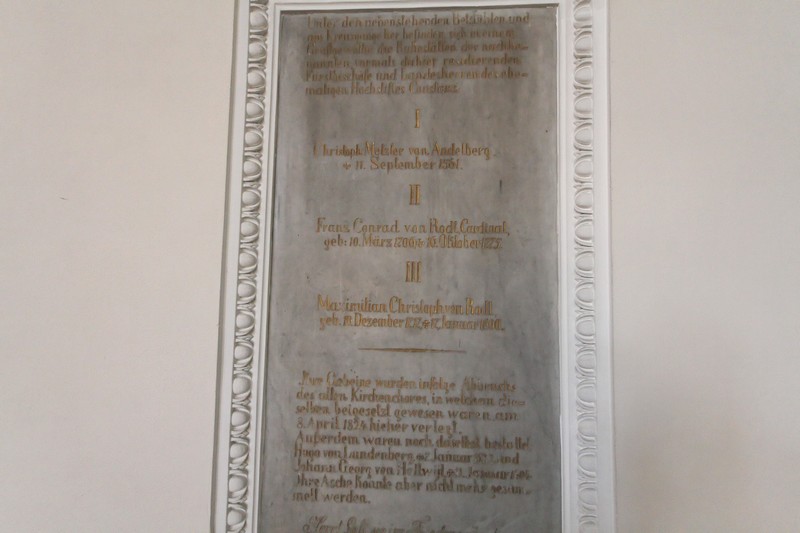 Unter den nebenstehenden Betstühlen und
am Kreuzung
befinden sich in einem
Grabgewölbe die Ruhestätten der nachbe-
nannten vormals dahier residierenden
Fürstbischöfe und Landesherren des ehe-
maligen Hochstiftes Constanz
I
Christoph Metzler von Andelberg.
† 11. September 1561.
II
Franz Conrad von Rodt, Cardinal,
geb: 10. März
† 16. Oktober 1775.
III
Maximilian Christoph von Rodt
geb. 10. Dezember
Januar 1800.
Ihre Gebeine wurden infolge Abbruchs
des alten Kirchenchores, in welchem die-
selben beigesetzt gewesen waren am
8. April 1874 hieher verlegt.
Außerdem waren noch daselbst bestattet
Hugo von Landenberg
Januar
und
Johann Georg von Hallwyl
Januar
Ihre Asche konnte aber nicht mehr gesam-
melt werden.